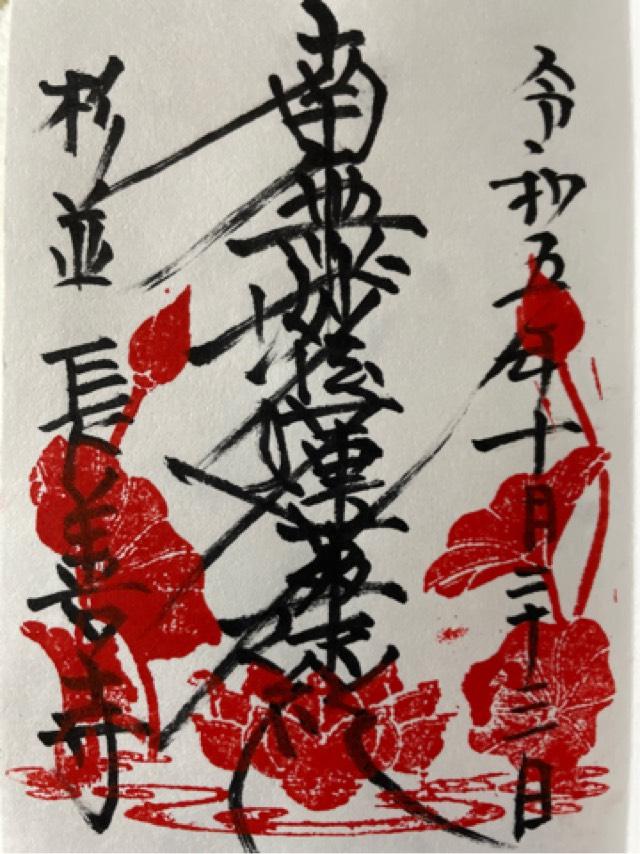 令和五年十月二十三日
南無妙法蓮華経
杉並 長善寺